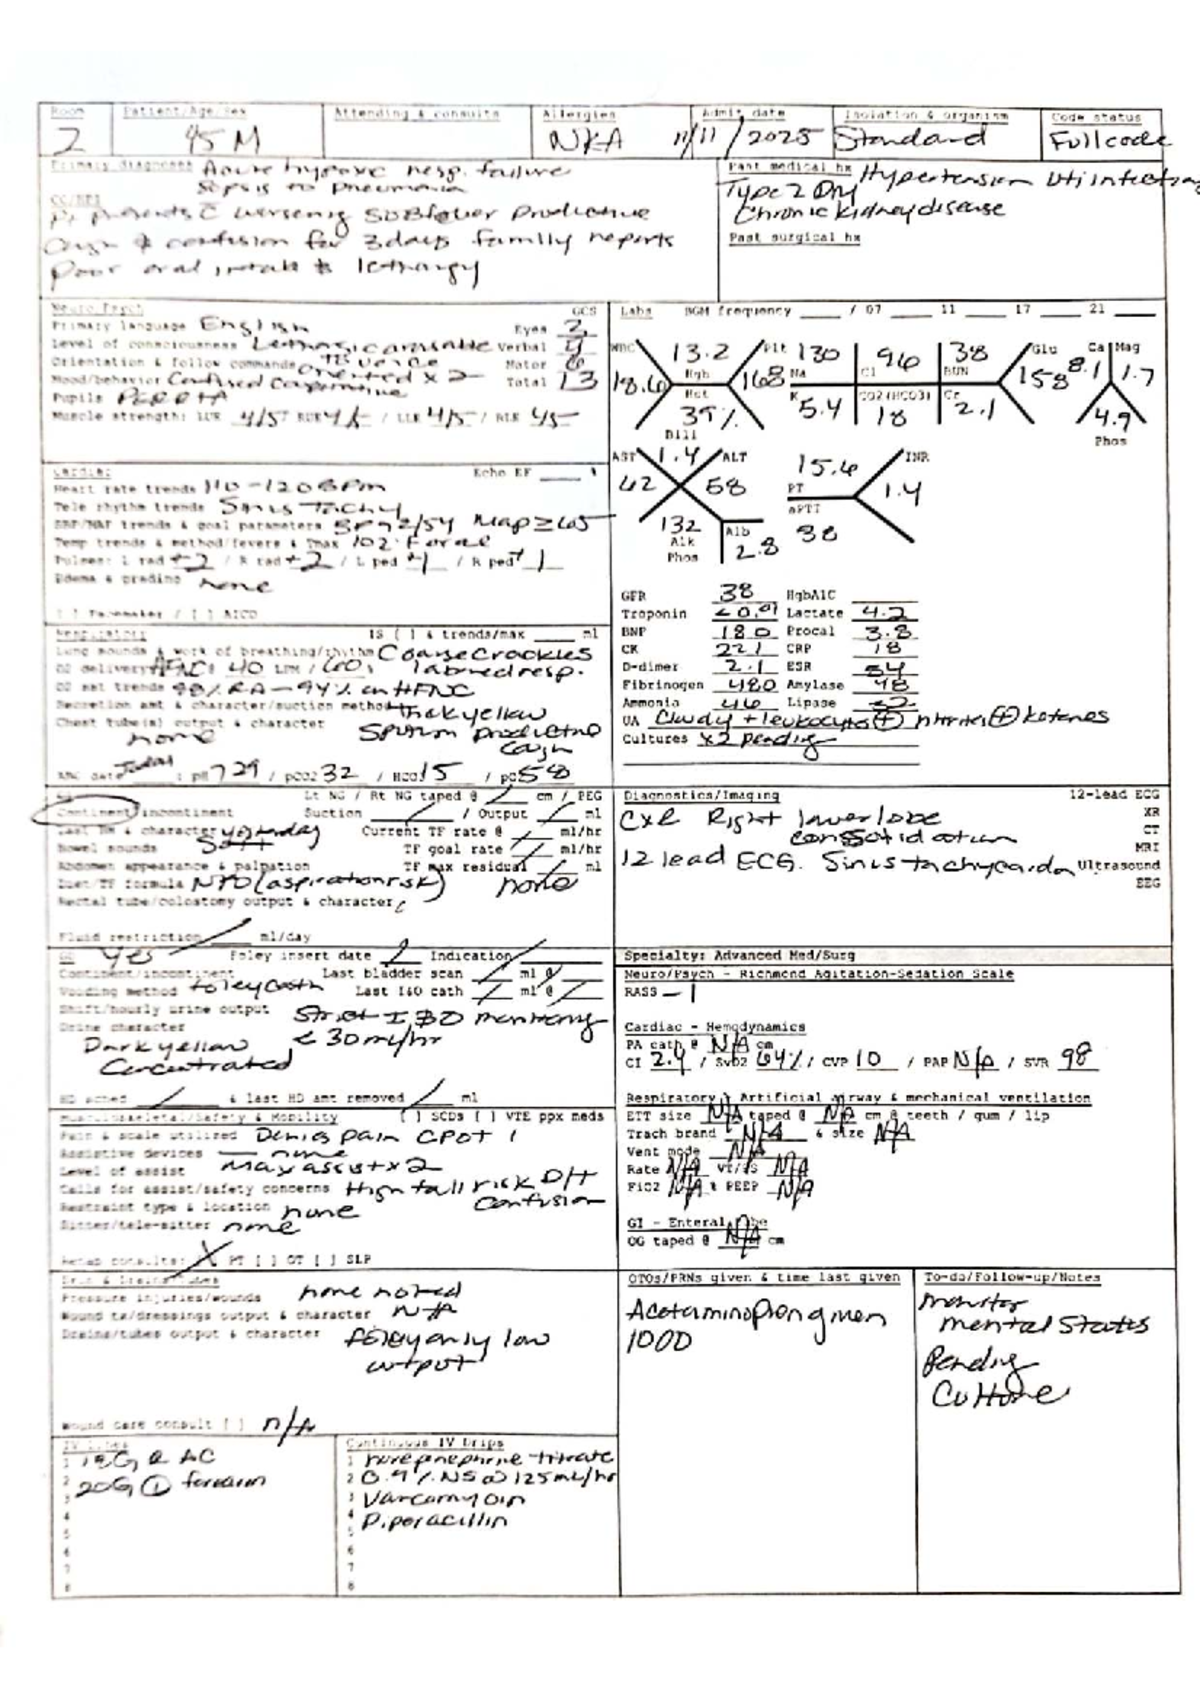 Room
2
Patient/Age/Sex
45 M
Attending & consults
Allergies
NKA
Admit date
11/11/2025
Isolation & organism
Standard
Code status
Full code
Primary diagnoses Acute hypoxic resp. failure
Sepsis to pneumonia
CC/HPI
Pt presents c worsening SOB fever Productive
Cough & confusion for 3 days family reports
poor oral intake & lethargy
Past medical hx Hypertension
Type 2
Chronic kidney disease
Past surgical hx
Neuro/Psych GCS
Primary language English Eyes
Level of consciousness Lethargic arousable Verbal
Orientation & follow commands to voice oriented x 2 Motor 6
Mood/behavior Confused Total 13
Pupils PERRLA
Muscle strength: LUE 4/5 RUE 4/5 / LLE 4/5 / RLE 4/5
Labs BGM frequency ____ / 07 ____ 11 ____ 17 ____ 21 ____
WBC 18.6 13.2 Hgb Hct 39% Plt 168
Na 130 Cl 96 BUN 38 Glu 158
K 5.4 CO2(HCO3) 18 Cr 2.1
Ca 8.1 Mag 1.7 4.9 Phos
Bili 1.4 AST 62 ALT 58
132 Alk Phos Alb 2.8
15.6 PT INR 1.4
aPTT 38
Cardiac Echo EF ____ %
Heart rate trends 110-120 BPM
Tele rhythm trends Sinus Tachy
SBP/MAP trends & goal parameters BP 92/54 Map ≥ 65
Temp trends & method/fevers & Tmax 102. F oral
Pulses: L rad +2 / R rad +2 / L ped +1 / R ped +1
Edema & grading none
[ ] Pacemaker / [ ] AICD
GFR 38 HgbA1C
Troponin <0.01 Lactate 4.2
BNP 180 Procal 3.8
CK 221 CRP 18
D-dimer 2.1 ESR 54
Fibrinogen 480 Amylase 48
Ammonia 46 Lipase
UA Cloudy + leukocytes (+) nitrites (+) ketones
Cultures x2 pending
Respiratory IS [ ] & trends/max ____ ml
Lung sounds & work of breathing/rhythm Coarse crackles
O2 delivery HFNC: 40 LPM / 60% labored resp.
O2 sat trends RA - 94% on HFNC
Secretion amt & character/suction method thick yellow
Chest tube(s) output & character Sputum productive
none cough
ABG date Today : pH 7.29 / pCO2 32 / HCO3 15 / pO2 58
Lt NG / Rt NG taped @ cm / PEG
Continent/incontinent Suction / Output ml
Last BM & character yesterday Current TF rate @ ml/hr
Bowel sounds Soft TF goal rate ml/hr
Abdomen appearance & palpation TF max residual ml
Diet/TF formula NPO (aspiration risk) none
Rectal tube/colostomy output & character
Fluid restriction ____ ml/day
Diagnostics/Imaging 12-lead ECG
CXR Right lower lobe XR
consolidation CT
MRI
12 lead ECG. Sinus tachycardia Ultrasound
EEG
GU yes Foley insert date Indication
Continent/incontinent Last bladder scan ml @
Voiding method foley cath Last I&O cath ml @
Shift/hourly urine output Strict I & O monitoring
Urine character < 30 ml/hr
Dark yellow
Concentrated
HD sched & last HD amt removed ml
Specialty: Advanced Med/Surg
Neuro/Psych - Richmond Agitation-Sedation Scale
RASS -1
Cardiac - Hemodynamics
PA cath @ N/A cm
CI 2.4 / SvO2 64% / CVP 10 / PAP N/A / SVR 98
Musculoskeletal/Safety & Mobility [ ] SCDs [ ] VTE ppx meds
Pain & scale utilized Denies pain CPOT 1
Assistive devices - none
Level of assist Max assist x2
Calls for assist/safety concerns High fall risk D/t
Restraint type & location none Confusion
Sitter/tele-sitter none
Rehab consults: X PT [ ] OT [ ] SLP
Respiratory - Artificial airway & mechanical ventilation
ETT size N/A taped @ N/A cm @ teeth / gum / lip
Trach brand N/A & size N/A
Vent mode N/A
Rate N/A VT/PS N/A
FiO2 N/A & PEEP N/A
GI - Enteral tube
OG taped @ N/A cm
Skin & Drains/Tubes
Pressure injuries/wounds none noted
Wound tx/dressings output & character N/A
Drains/tubes output & character foley only low
output
Wound care consult [ ] n/A
OTOs/PRNs given & time last given
Acetaminophen given
1000
To-do/Follow-up/Notes
Monitor
mental Status
Pending
Culture
IV Lines
1 18G R AC
2 20G L forearm
3
4
5
6
7
8
Continuous IV Drips
1 norepinephrine - titrate
2 0.9% NS @ 125 mL/hr
3 Vancomyoin
4 Piperacillin
5
6
7
8